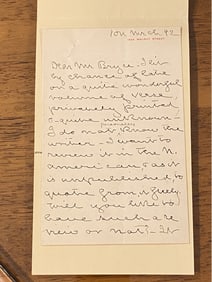 10th Mrch 92
Dear Mr Bryce - I lit
by chance of late
on a quite wonderful
volume of verse
privately printed
& quite unknown -
I do not know the
writer - I want to
review it in the N.
American & as it
is unpublished, to
quote from it freely.
Will you like to
have such a re
view or not? - It